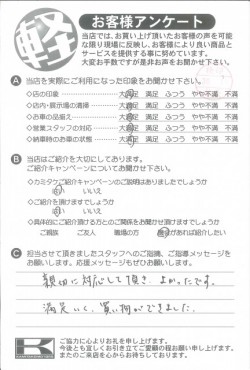 軽
お客様アンケート
当店では、お買い上げ頂いたお客様の声を可能
な限り現場に反映し、お客様により良い商品と
サービスを提供する事に努めています。
大変お手数ですが是非お声をお聞かせ下さい。
A 当店を実際にご利用になった印象をお聞かせ下さい。
◇店の印象 大満足 満足 ふつう やや不満 不満
◇店内・展示場の清掃 大満足 満足 ふつう やや不満 不満
◇お車の品揃え 大満足 満足 ふつう やや不満 不満
◇営業スタッフの対応 大満足 満足 ふつう やや不満 不満
◇納車時のお車の状態 大満足 満足 ふつう やや不満 不満
B 当店はご紹介を大切にしております。
ご紹介キャンペーンについてお聞かせ下さい。
◇カミタケご紹介キャンペーンのご説明はありましたでしょうか
はい いいえ
◇ご紹介を頂けますでしょうか
はい いいえ
◇具体的にご紹介頂ける方とのご関係をお聞かせ頂けますでしょうか
ご親族 ご友人 職場の方 があれば紹介したい
C 担当させて頂きましたスタッフへのご指摘、ご指導メッセージを
お願いします。応援メッセージもぜひお願いします。
親切に対応して頂き、よかったです。
満足いく、買い物ができました。
K
ご協力に心よりお礼を申し上げます。
今後とも宜しくお引き立てご愛顧の程お願い申し上げます。
またのご来店を心からお待ちしております。